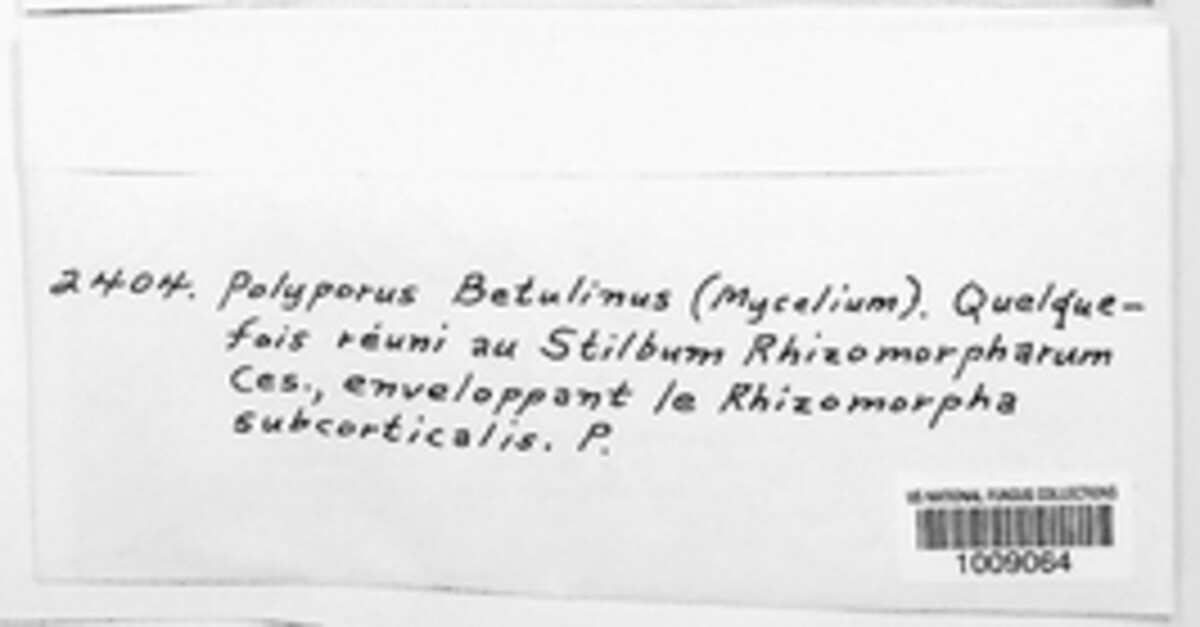 2404. Polyporus Betulinus (Mycelium). Quelque-
fois réuni au Stilbum Rhizomorpharum
Ces., enveloppant le Rhizomorpha
subcorticalis. P.
US NATIONAL FUNGUS COLLECTIONS
1009064